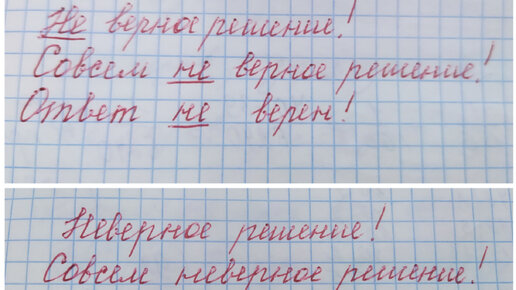 Не верное решение!
Совсем не верное решение!
Ответ не верен!
Неверное решение!
Совсем неверное решение!